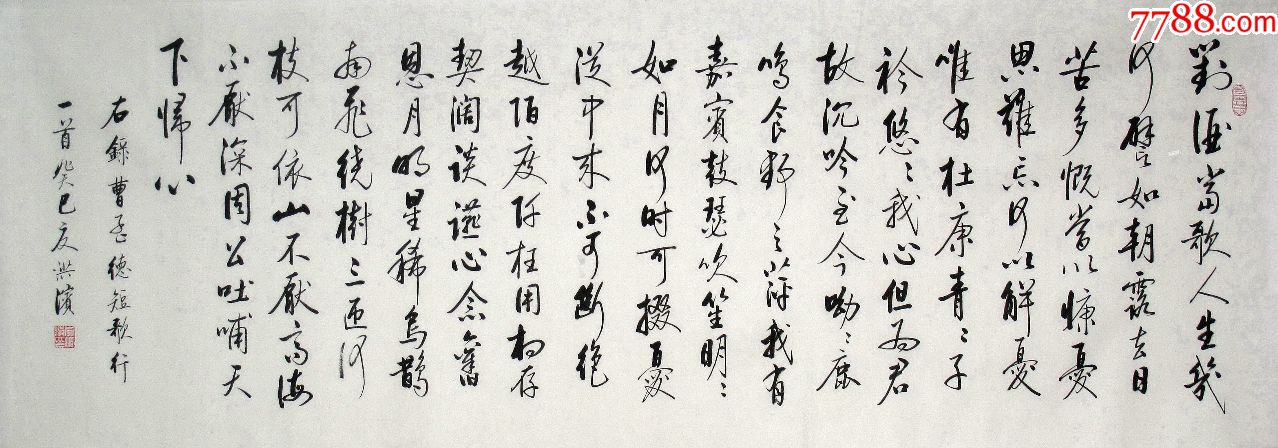 7788.com
對酒當歌人生幾
何譬如朝露去日
苦多慨當以慷憂
思難忘何以解憂
唯有杜康青〻子
衿悠〻我心但為君
故沉吟至今呦〻鹿
鳴食野之苹我有
嘉賓鼓瑟吹笙明〻
如月何时可掇憂
從中来不可斷绝
越陌度阡枉用相存
契阔谈讌心念舊
恩月明星稀烏鵲
南飛绕樹三匝何
枝可依山不厭高海
不厭深周公吐哺天
下歸心
右錄曹孟德短歌行
一首癸巳夏洪濱